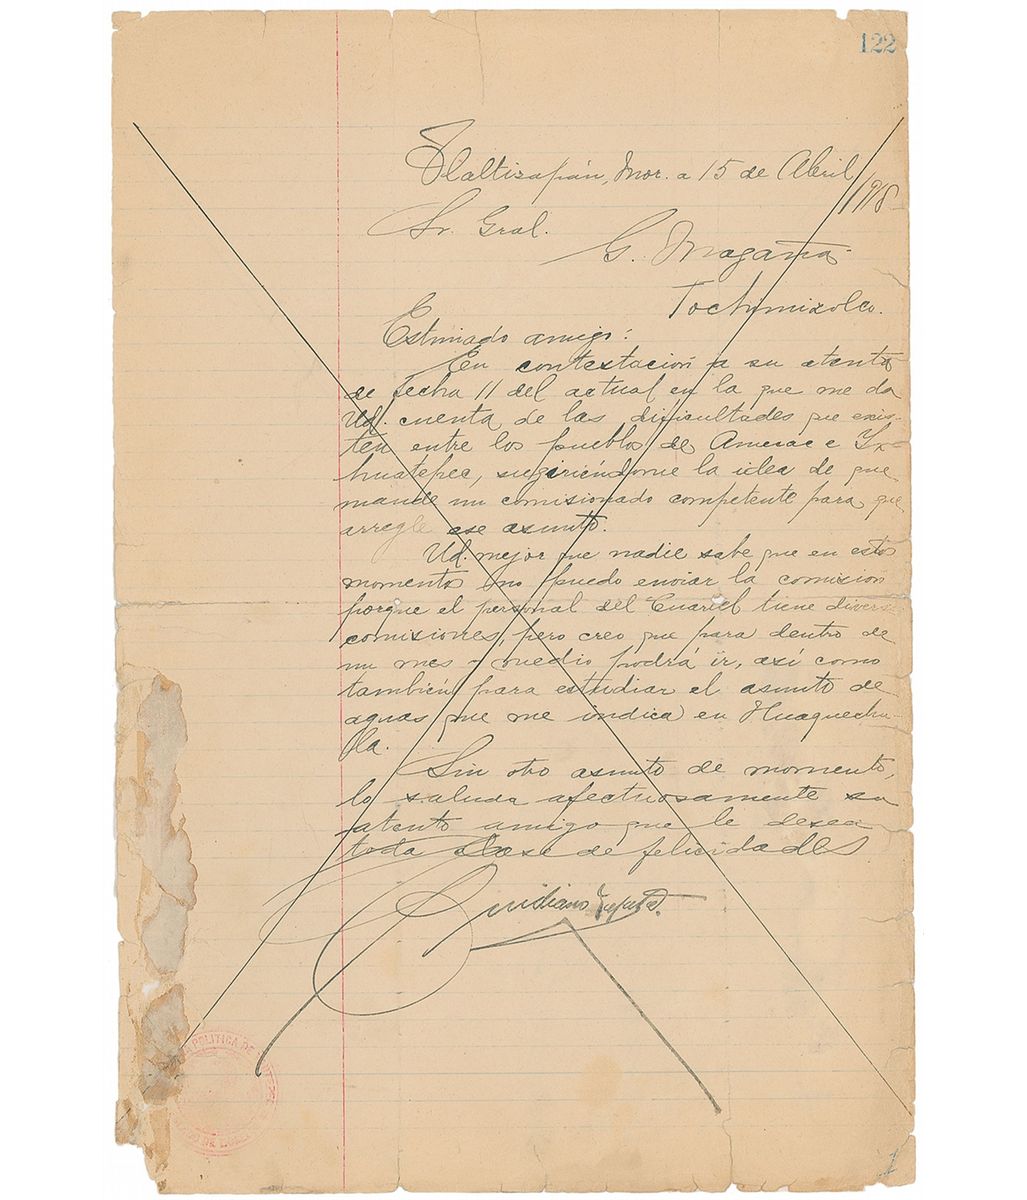 122
Tlaltizapán, Mor. a 15 de Abril
1918
Sr. Gral.
G. Magaña.
Tochimizolco.
Estimado amigo:
En contestación a su atenta
de fecha 11 del actual en la que me da
Ud. cuenta de las dificultades que exis-
ten entre los pueblos de Amecac e Ix-
huatepec, sugiriéndome la idea de que
mande un comisionado competente para que
arregle ese asunto.
Ud. mejor que nadie sabe que en estos
momentos no puedo enviar la comision
porque el personal del Cuartel tiene divers
comisiones, pero creo que para dentro de
un mes y medio podrá ir, así como
también para estudiar el asunto de
aguas que me indica en Huaquechu-
la.
Sin otro asunto de momento,
lo saluda afectuosamente su
atento amigo que le desea
toda clase de felicidades
Emiliano Zapata.
POLITICA DE
1